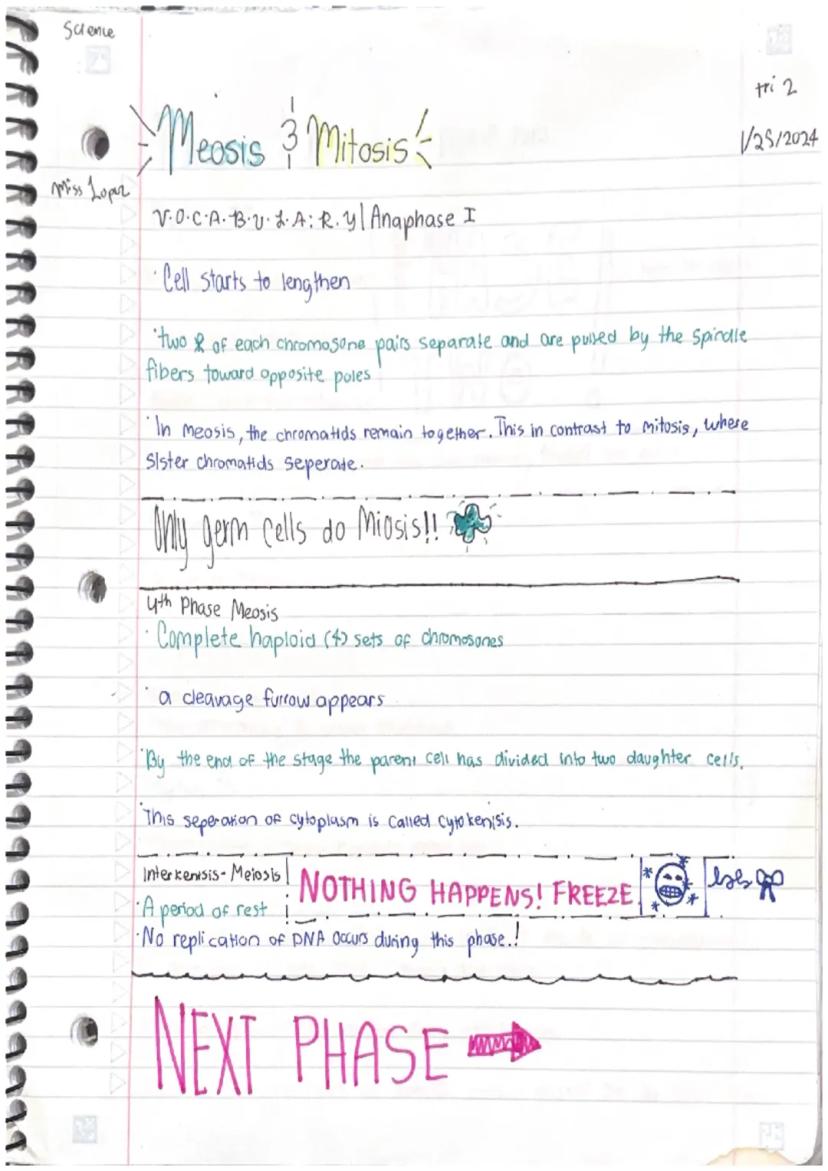 Science
tri 2
1/25/2024
Meosis & Mitosis
Miss Lopez
V.O.C.A.B.U.L.A.R.Y | Anaphase I
· Cell starts to lengthen
· two of each chromosone pairs separate and are pulled by the spindle
fibers toward opposite poles
· In meosis, the chromatids remain together. This in contrast to mitosis, where
sister chromatids seperate.
Only germ cells do Miosis!!
4th Phase Meosis
· Complete haploid (4) sets of chromosones
· a cleavage furrow appears
· By the end of the stage the parent cell has divided into two daughter cells.
· This seperation of cytoplasm is called cytokenisis.
Interkenisis - Meiosis
NOTHING HAPPENS! FREEZE
· A period of rest
· No replication of DNA occurs during this phase.!
NEXT PHASE